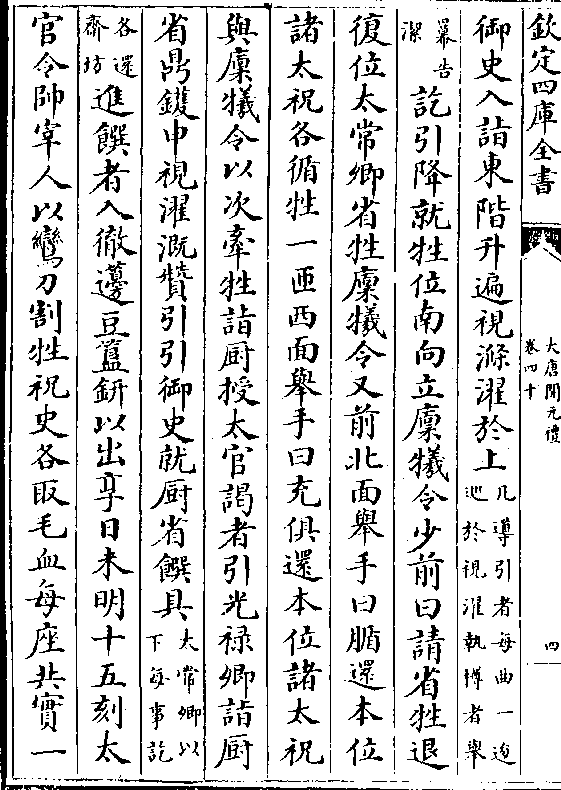 欽定四庫全書
大唐開元禮
卷四十
四
御史入詣東階升遍視滌濯於上
凡導引者每曲一逡
巡於視濯執罇者舉
冪告
潔
訖引降就牲位南向立廪犧令少前曰請省牲退
復位太常卿省牲廪犧令又前北面舉手曰腯還本位
諸太祝各循牲一匝西面舉手曰充俱還本位諸太祝
與廪犧令以次牽牲詣厨授太官謁者引光禄卿詣厨
省鼎鑊申視濯溉贊引引御史就厨省饌具
太常卿以
下每事訖
各還
齋坊
進饌者入徹籩豆簋鈃以出享日未明十五刻太
官令帥宰人以鸞刀割牲祝史各取毛血每座共實一